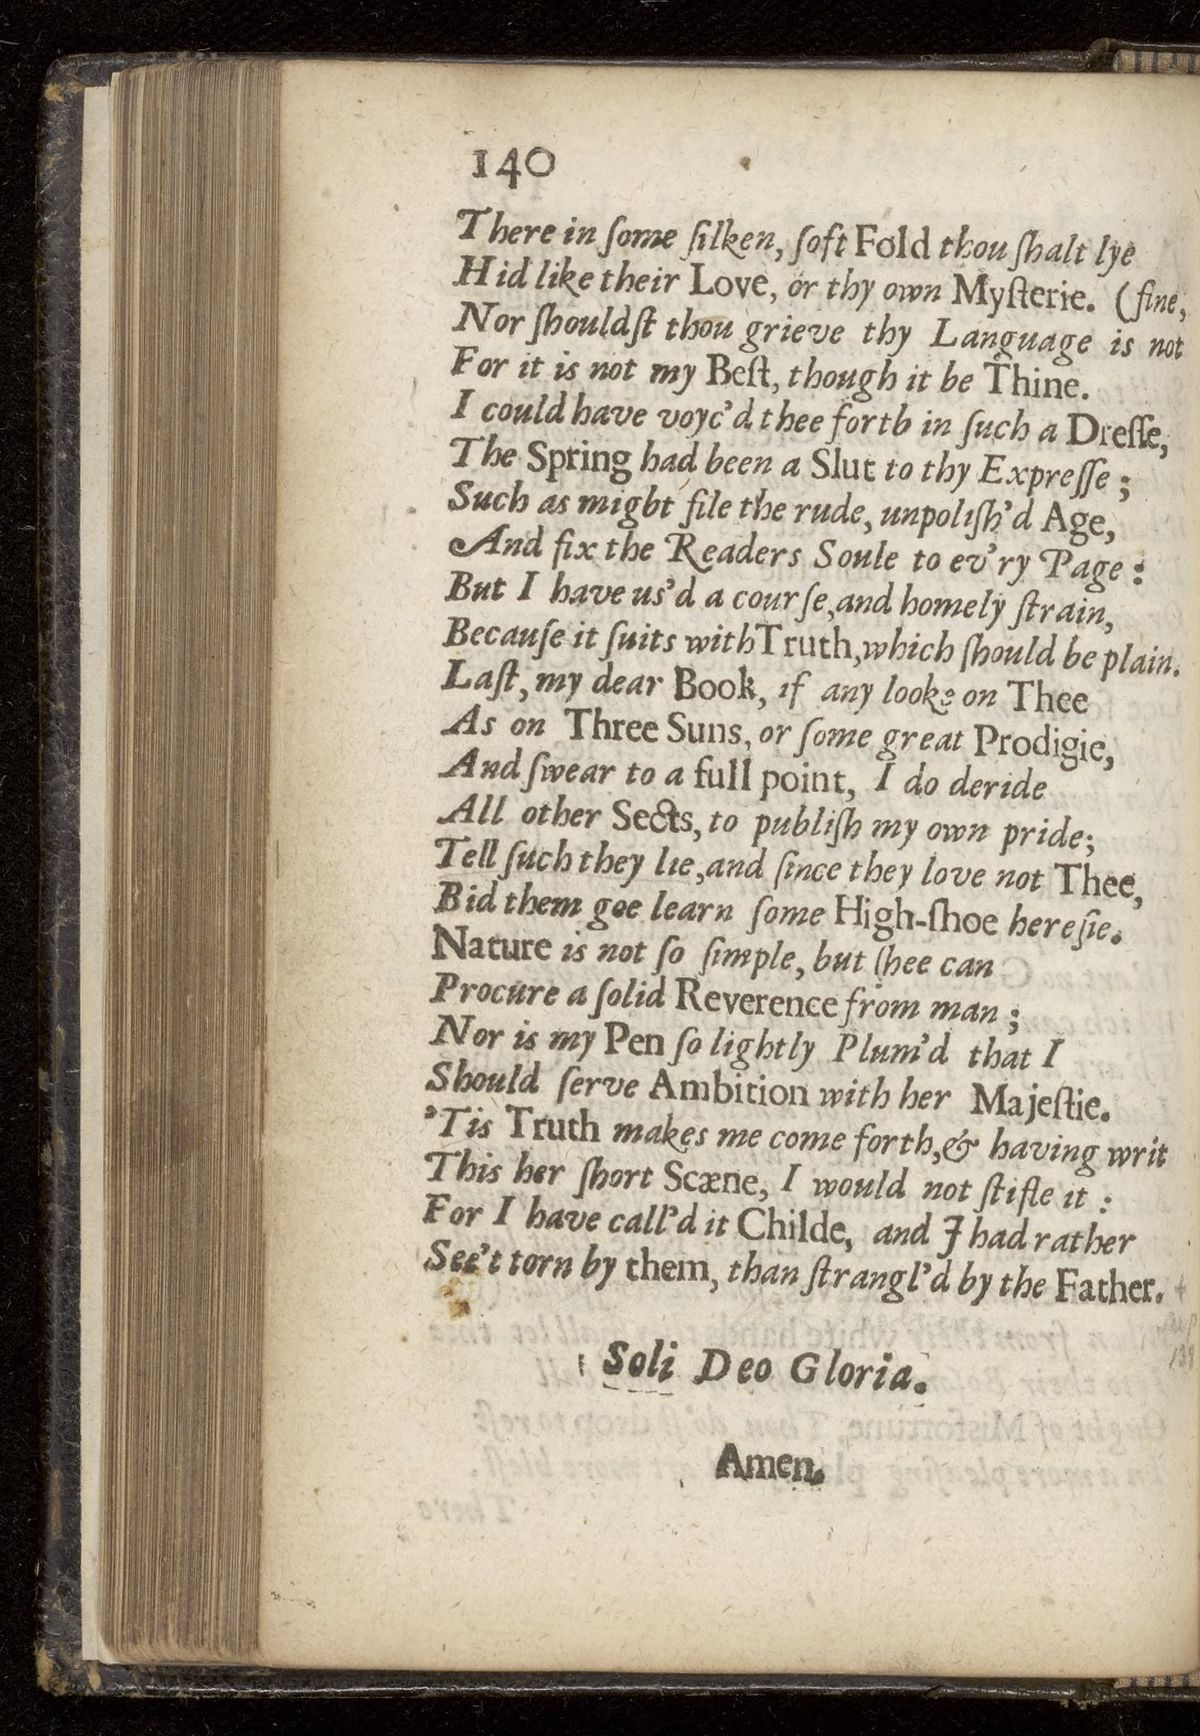 140
There in ſome ſilken, ſoft Fold thou ſhalt lye
Hid like their Love, or thy own Myſterie. (fine,
Nor ſhouldſt thou grieve thy Language is not
For it is not my Beſt, though it be Thine.
I could have voyc'd thee forth in ſuch a Dreſſe,
The Spring had been a Slut to thy Expreſſe;
Such as might file the rude, unpoliſh'd Age,
And fix the Readers Soule to ev'ry Page:
But I have us'd a courſe, and homely ſtrain,
Becauſe it ſuits with Truth, which ſhould be plain.
Laſt, my dear Book, if any looke on Thee
As on Three Suns, or ſome great Prodigie,
And ſwear to a full point, I do deride
All other Sects, to publiſh my own pride;
Tell ſuch they lie, and ſince they love not Thee,
Bid them goe learn ſome High-ſhoe hereſie.
Nature is not ſo ſimple, but ſhee can
Procure a ſolid Reverence from man;
Nor is my Pen ſo lightly Plum'd that I
Should ſerve Ambition with her Majeſtie.
'Tis Truth makes me come forth, & having writ
This her ſhort Scæne, I would not ſtifle it:
For I have call'd it Childe, and I had rather
See't torn by them, than ſtrangl'd by the Father.
Soli Deo Gloria.
Amen.